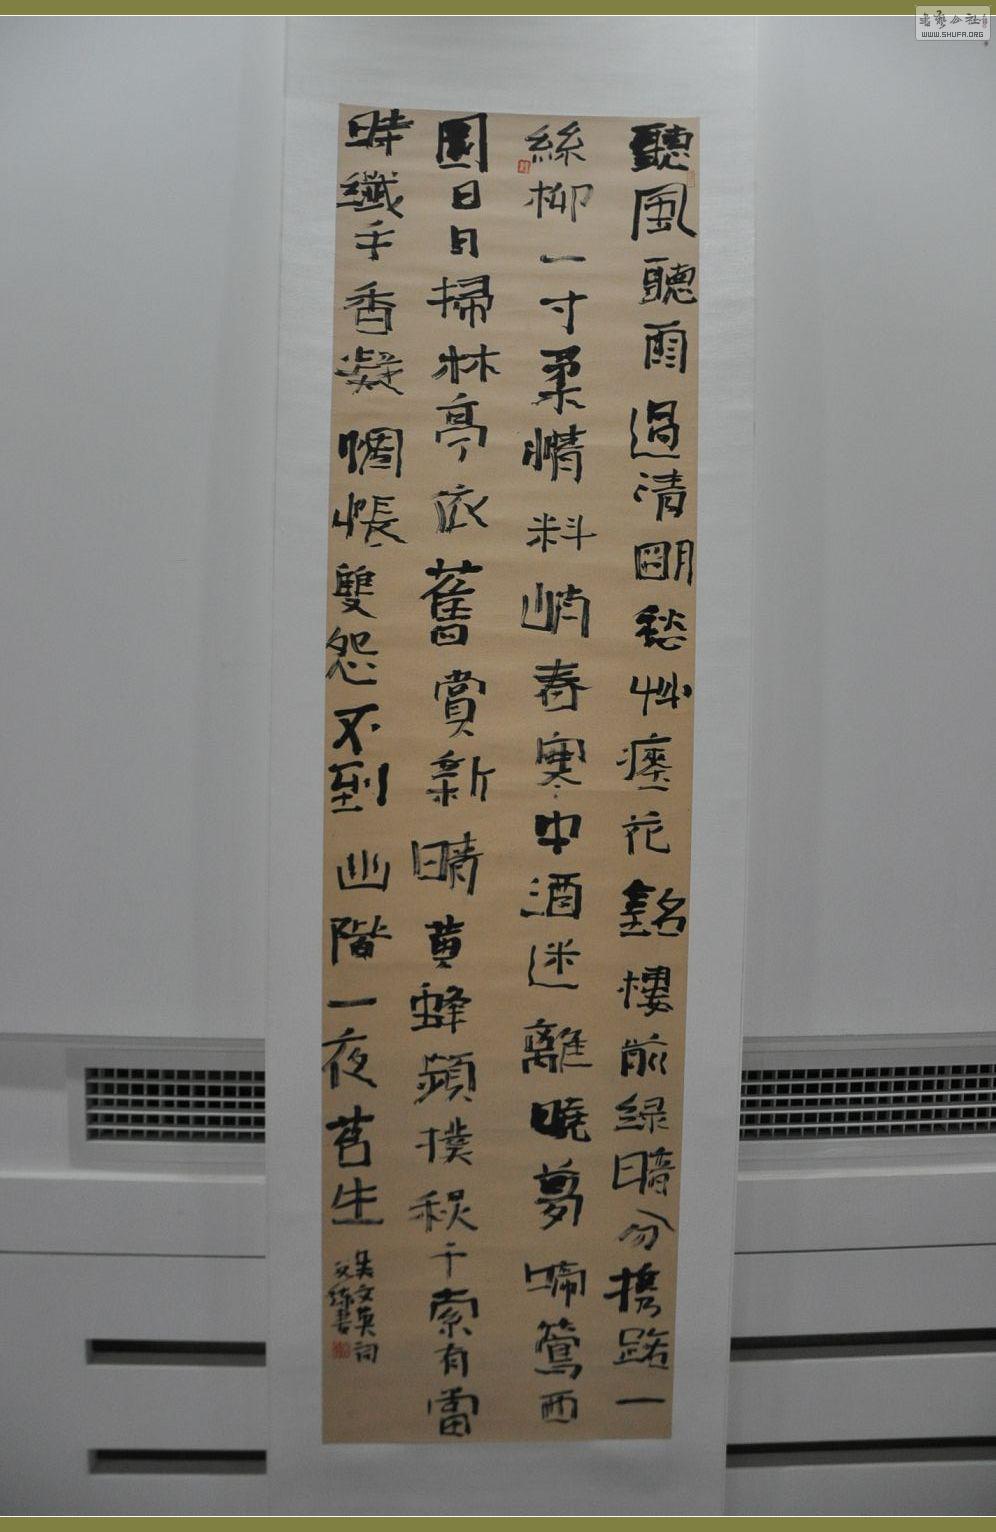 聽風聽雨過清明愁艸瘞花銘樓前綠暗分攜路一
絲柳一寸柔情料峭春寒中酒迷離曉夢啼鶯西
園日日掃林亭依舊賞新晴黃蜂頻撲秋千索有當
時纖手香凝惆悵雙怨不到幽階一夜苔生
吳文英詞
書
WWW.SHUFA.ORG